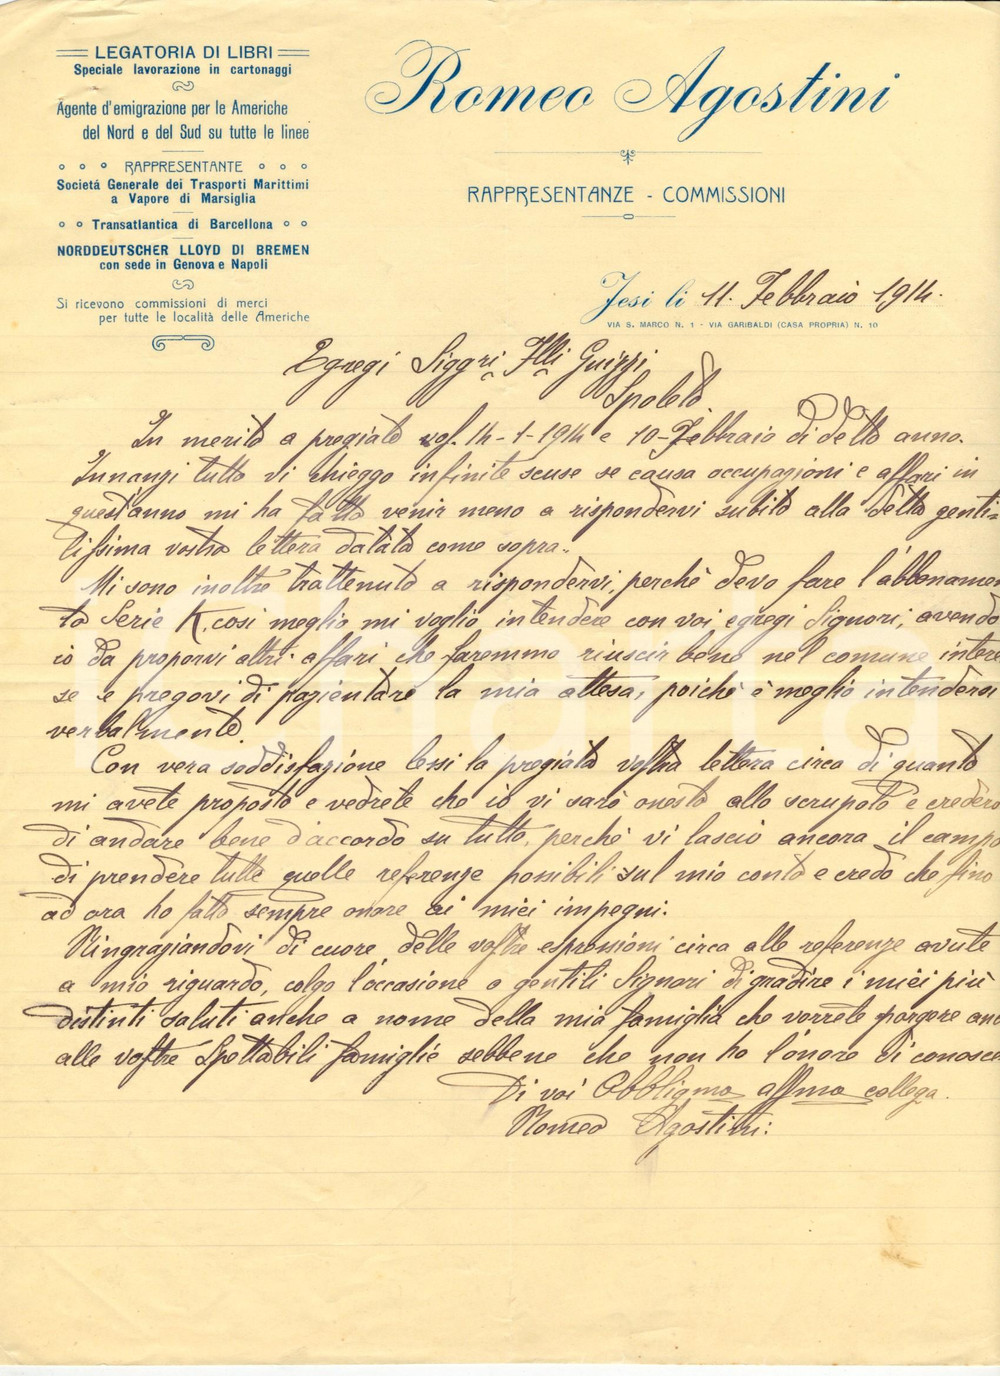 LEGATORIA DI LIBRI
Speciale lavorazione in cartonaggi
Agente d'emigrazione per le Americhe
del Nord e del Sud su tutte le linee
RAPPRESENTANTE
Societá Generale dei Trasporti Marittimi
a Vapore di Marsiglia
Transatlantica di Barcellona
NORDDEUTSCHER LLOYD DI BREMEN
con sede in Genova e Napoli
Si ricevono commissioni di merci
per tutte le località delle Americhe
Romeo Agostini
RAPPRESENTANZE - COMMISSIONI
Jesi li 11. Febbraio 1914.
VIA S. MARCO N. 1 - VIA GARIBALDI (CASA PROPRIA) N. 10
Egregi Siggri Flli Guizzi
Spoleto
In merito a pregiato 14-1-1914 e 10-Febbraio di detto anno.
Innanzi tutto vi chieggo infinite scuse se causa occupazioni e affari in
quest'anno mi ha fatto venir meno a rispondervi subito alla detta genti=
lissima vostra lettera datata come sopra.
Mi sono inoltre trattenuto a rispondervi, perchè devo fare l'abbonamen
to Serie K, cosi meglio mi voglio intendere con voi egregi Signori, avendo
io da proporvi altri affari che faremmo riuscir bene nel comune intere
se e pregovi di pazientare la mia attesa, poichè è meglio intendersi
verbalmente.
Con vera soddisfazione lessi la pregiata vostra lettera circa di quanto
mi avete proposto e vedrete che io vi sarò onesto allo scrupolo e credèro
di andare bene d'accordo su tutto, perchè vi lascio ancora il campo
di prendere tutte quelle referenze possibili sul mio conto e credo che fino
ad ora ho fatto sempre onore ai miei impegni.
Ringraziandovi di cuore delle vostre espressioni circa alle referenze avute
a mio riguardo, colgo l'occasione o gentili Signori di gradire i miei più
distinti saluti anche a nome della mia famiglia che vorrete porgere anc
alle vostre Spettabili famiglie sebbene che non ho l'onore di conosce
Di voi Obbligmo affmo collega.
Romeo Agostini: